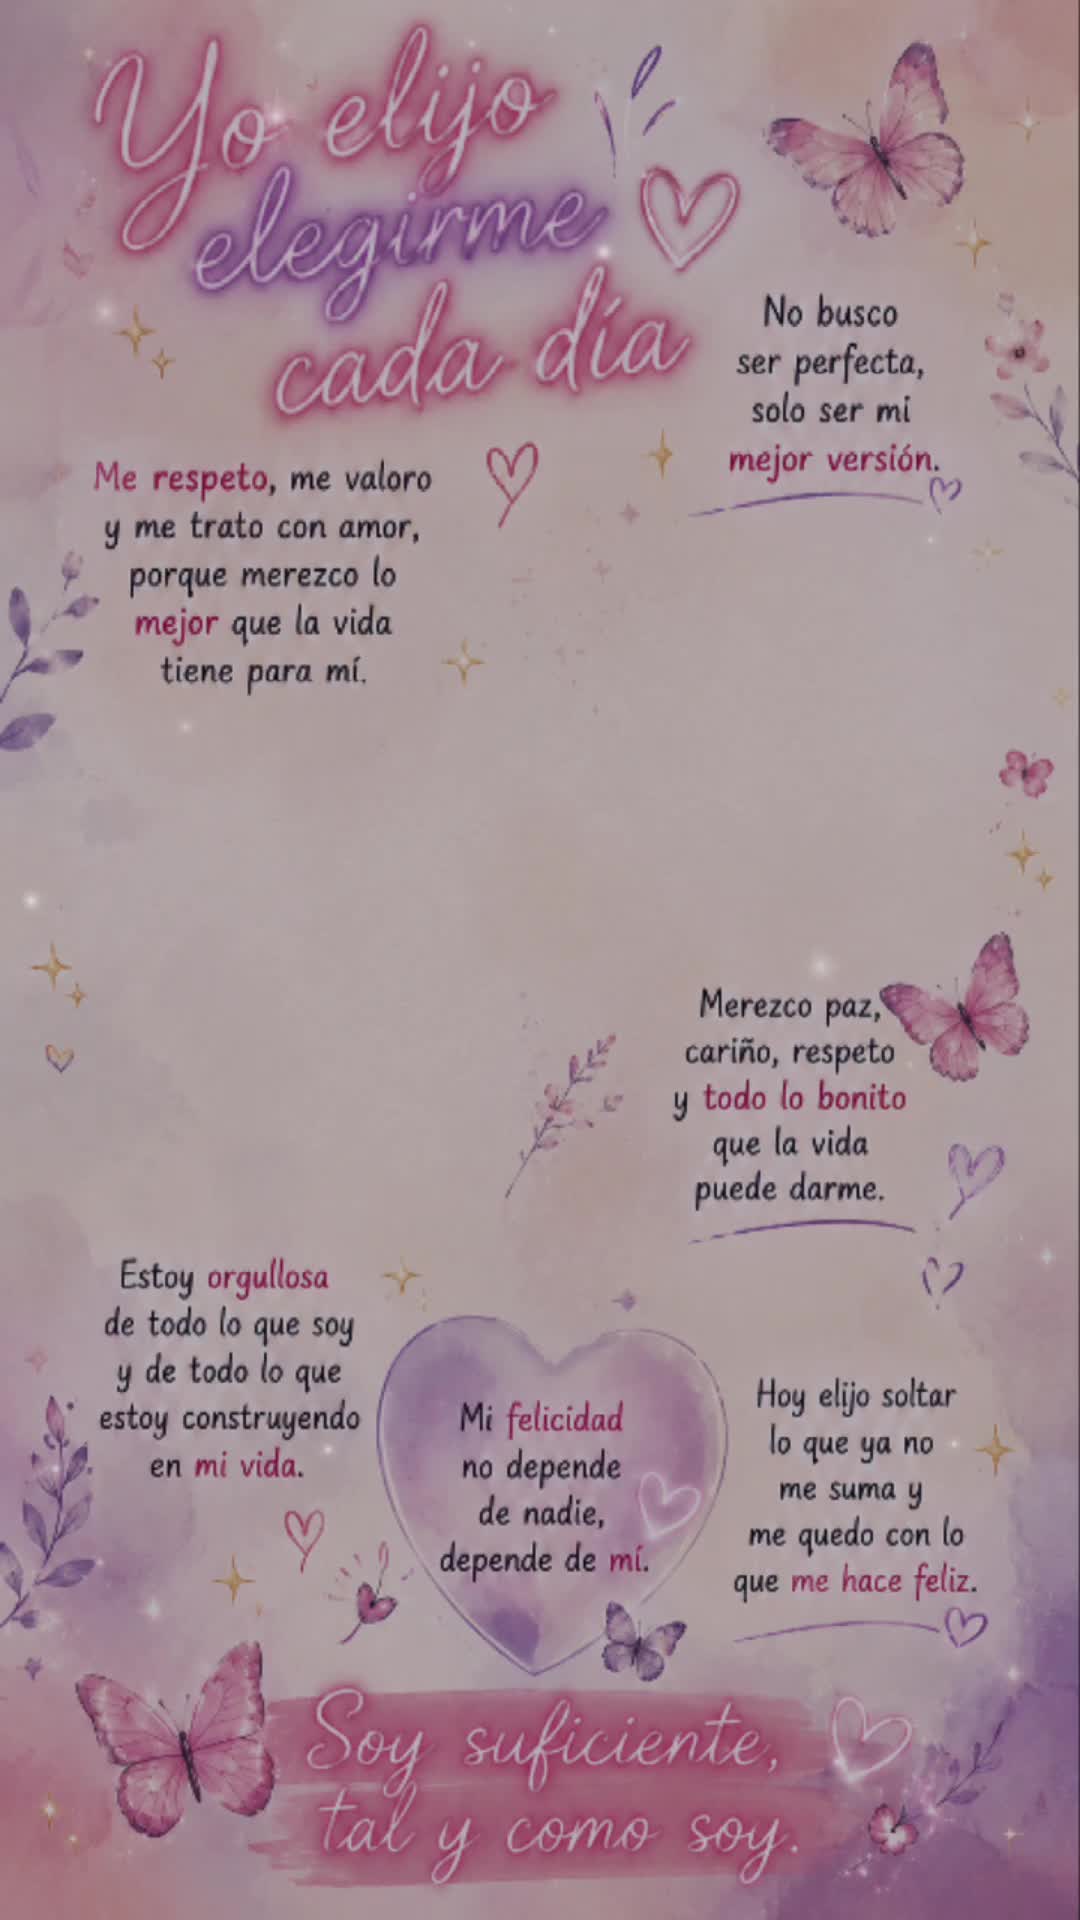 Yo elijo
elegirme
cada día
No busco
ser perfecta,
solo ser mi
mejor versión.
Me respeto, me valoro
y me trato con amor,
porque merezco lo
mejor que la vida
tiene para mí.
Merezco paz,
cariño, respeto
y todo lo bonito
que la vida
puede darme.
Estoy orgullosa
de todo lo que soy
y de todo lo que
estoy construyendo
en mi vida.
Mi felicidad
no depende
de nadie,
depende de mí.
Hoy elijo soltar
lo que ya no
me suma y
me quedo con lo
que me hace feliz.
Soy suficiente,
tal y como soy.